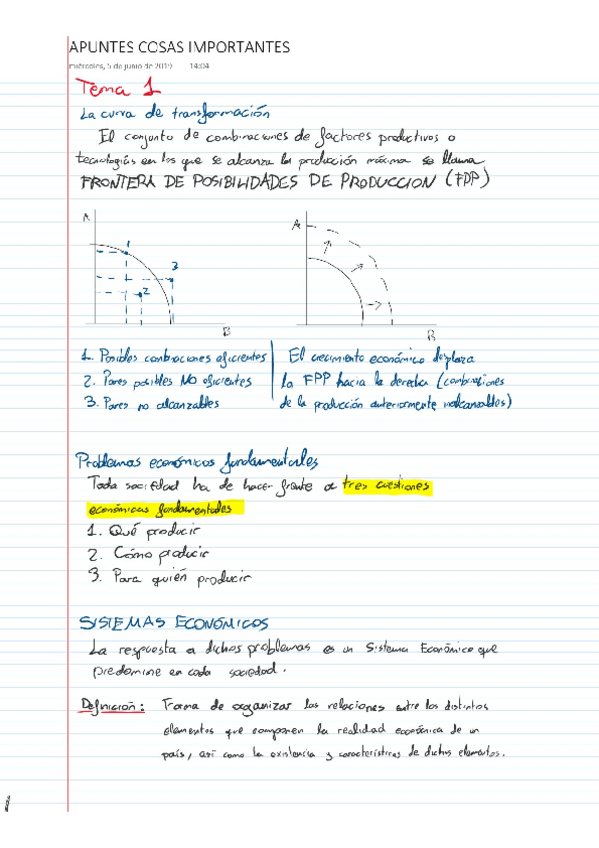 APUNTES COSAS IMPORTANTES
miércoles, 5 de junio de 2019 14:04
Tema 1
La curva de transformación
El conjunto de combinaciones de factores productivos o
tecnologías en los que se alcanza la producción máxima se llama
FRONTERA DE POSIBILIDADES DE PRODUCCION (FPP)
A
1
3
2
B
A
B
1. Posibles combinaciones eficientes
2. Pares posibles NO eficientes
3. Pares no alcanzables
El crecimiento económico desplaza
la FPP hacia la derecha (combinaciones
de la producción anteriormente inalcanzables)
Problemas económicos fundamentales
Toda sociedad ha de hacer frente a tres cuestiones
económicas fundamentales
1. Qué producir
2. Cómo producir
3. Para quién producir
SISTEMAS ECONÓMICOS
La respuesta a dichos problemas es un Sistema Económico que
predomine en cada sociedad.
Definición: Forma de organizar las relaciones entre los distintos
elementos que componen la realidad económica de un
país, así como la existencia y características de dichos elementos.
1